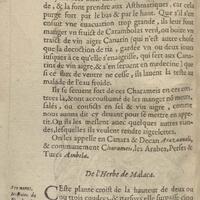 de, & la font prendre aux Asthmatiques, car cela
purge fort par le bas & par le haut. Que s'il s'en
ensuit vne euacuation trop grande, ils leur font
manger vn fruict de Carambolas verd, ou boire vn
traict de vin aigre Canarin (qui n'est autre chose
que la decoction de riz, gardée vn ou deux iours
iusques à ce qu'elle s'enaigrisse, qui sert aux Cana-
rins de vin aigre, & s'en seruent en medecine) que si
ce flux de ventre ne cesse, ils lauent la teste au
malade de l'eau froide.
Ils se seruent fort de ces Charameis en ces con-
trees là, & ont accoustumé de les manger ou meurs,
salés, ou confits en sel & en vin aigre, comme
nous auons dit cy deuant pour se mettre en appe-
tit. Ou ils les meslent auec quelques autres vian-
des, lesquelles ils veulent rendre aigrelettes.
On les appelle en Canara & Decan
& communement Charameis, les Arabes, Perses &
Turcs Ambela.
De l'Herbe de Malaca.
Ceste plante croit de la hauteur de deux ou